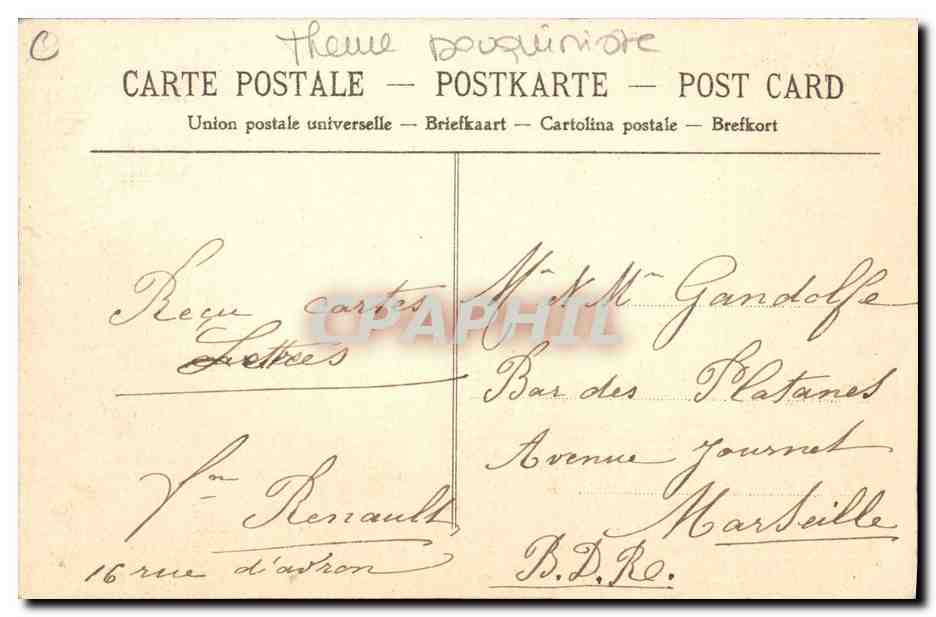 C
Theme bouquiniste
CARTE POSTALE — POSTKARTE — POST CARD
Union postale universelle — Briefkaart — Cartolina postale — Brefkort
Reçu cartes
Lettres
Renault
16 rue d'avron
Gandolfe
Bar des Platanes
Avenue Journet
Marseille
B.D.R.
CPAPHIL